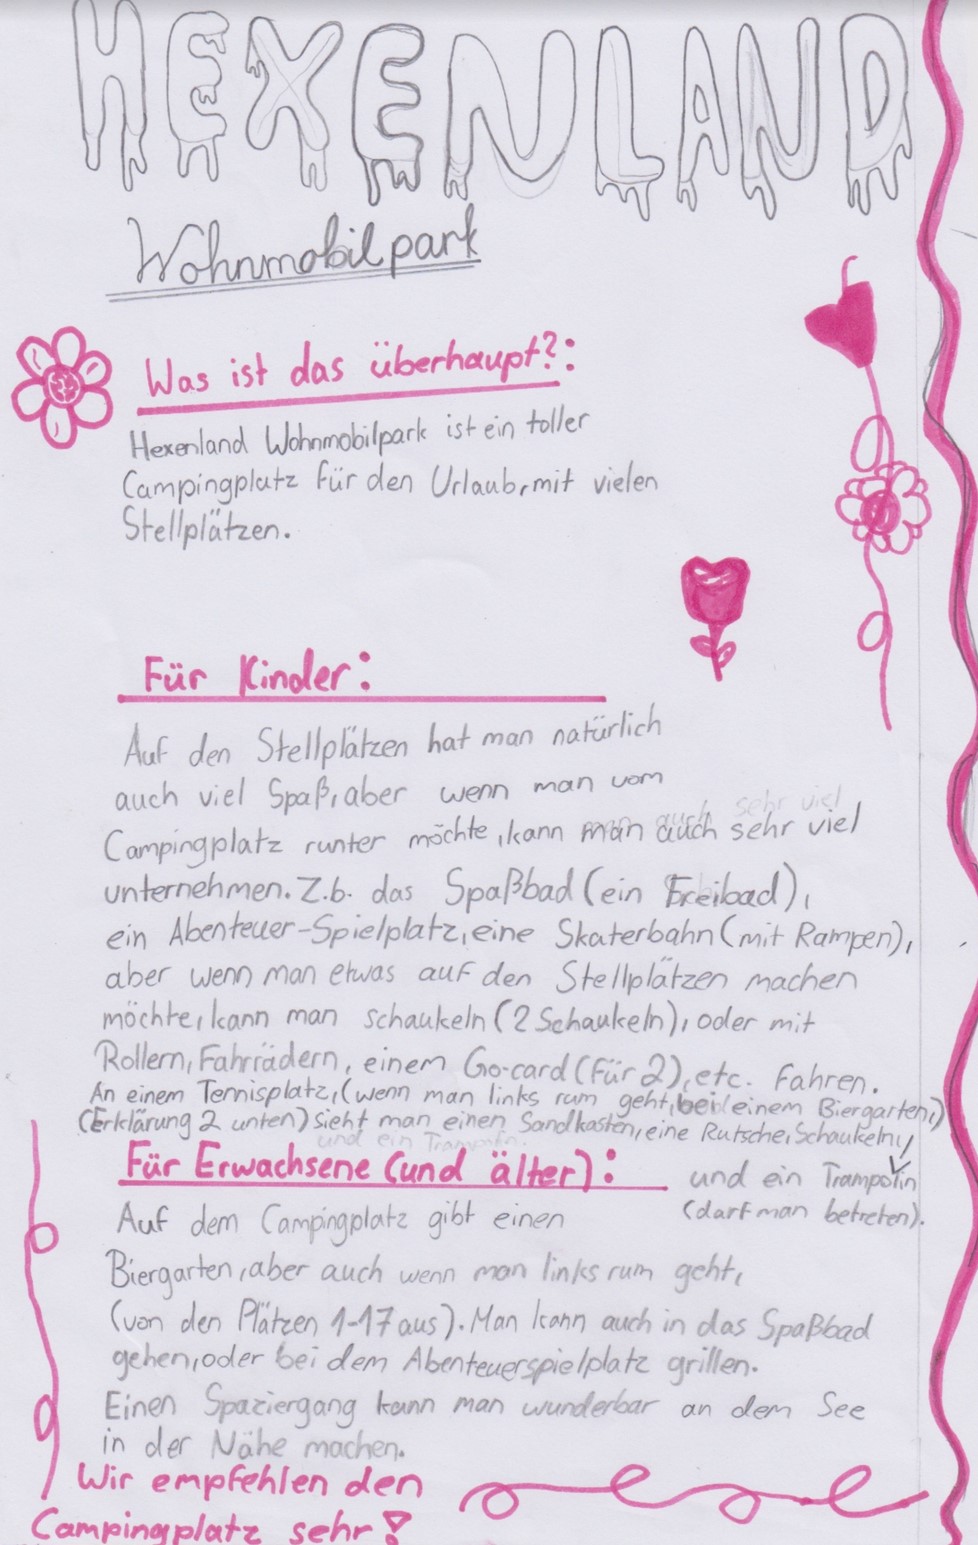 HEXENLAND
Wohnmobilpark
Was ist das überhaupt?:
Hexenland Wohnmobilpark ist ein toller
Campingplatz für den Urlaub, mit vielen
Stellplätzen.
Für Kinder:
Auf den Stellplätzen hat man natürlich
auch viel Spaß, aber wenn man vom
Campingplatz runter möchte, kann man auch sehr viel
unternehmen. Z.b. das Spaßbad (ein Freibad),
ein Abenteuer-Spielplatz, eine Skaterbahn (mit Rampen),
aber wenn man etwas auf den Stellplätzen machen
möchte, kann man schaukeln (2 Schaukeln), oder mit
Rollern, Fahrrädern, einem Go-card (für 2), etc. fahren.
An einem Tennisplatz, (wenn man links rum geht, bei einem Biergarten,)
(Erklärung 2 unten) sieht man einen Sandkasten, eine Rutsche, Schaukeln,
und ein Trampolin
(darf man betreten).
Für Erwachsene (und älter):
Auf dem Campingplatz gibt einen
Biergarten, aber auch wenn man links rum geht,
(von den Plätzen 1-17 aus). Man kann auch in das Spaßbad
gehen, oder bei dem Abenteuerspielplatz grillen.
Einen Spaziergang kann man wunderbar an dem See
in der Nähe machen.
Wir empfehlen den
Campingplatz sehr!